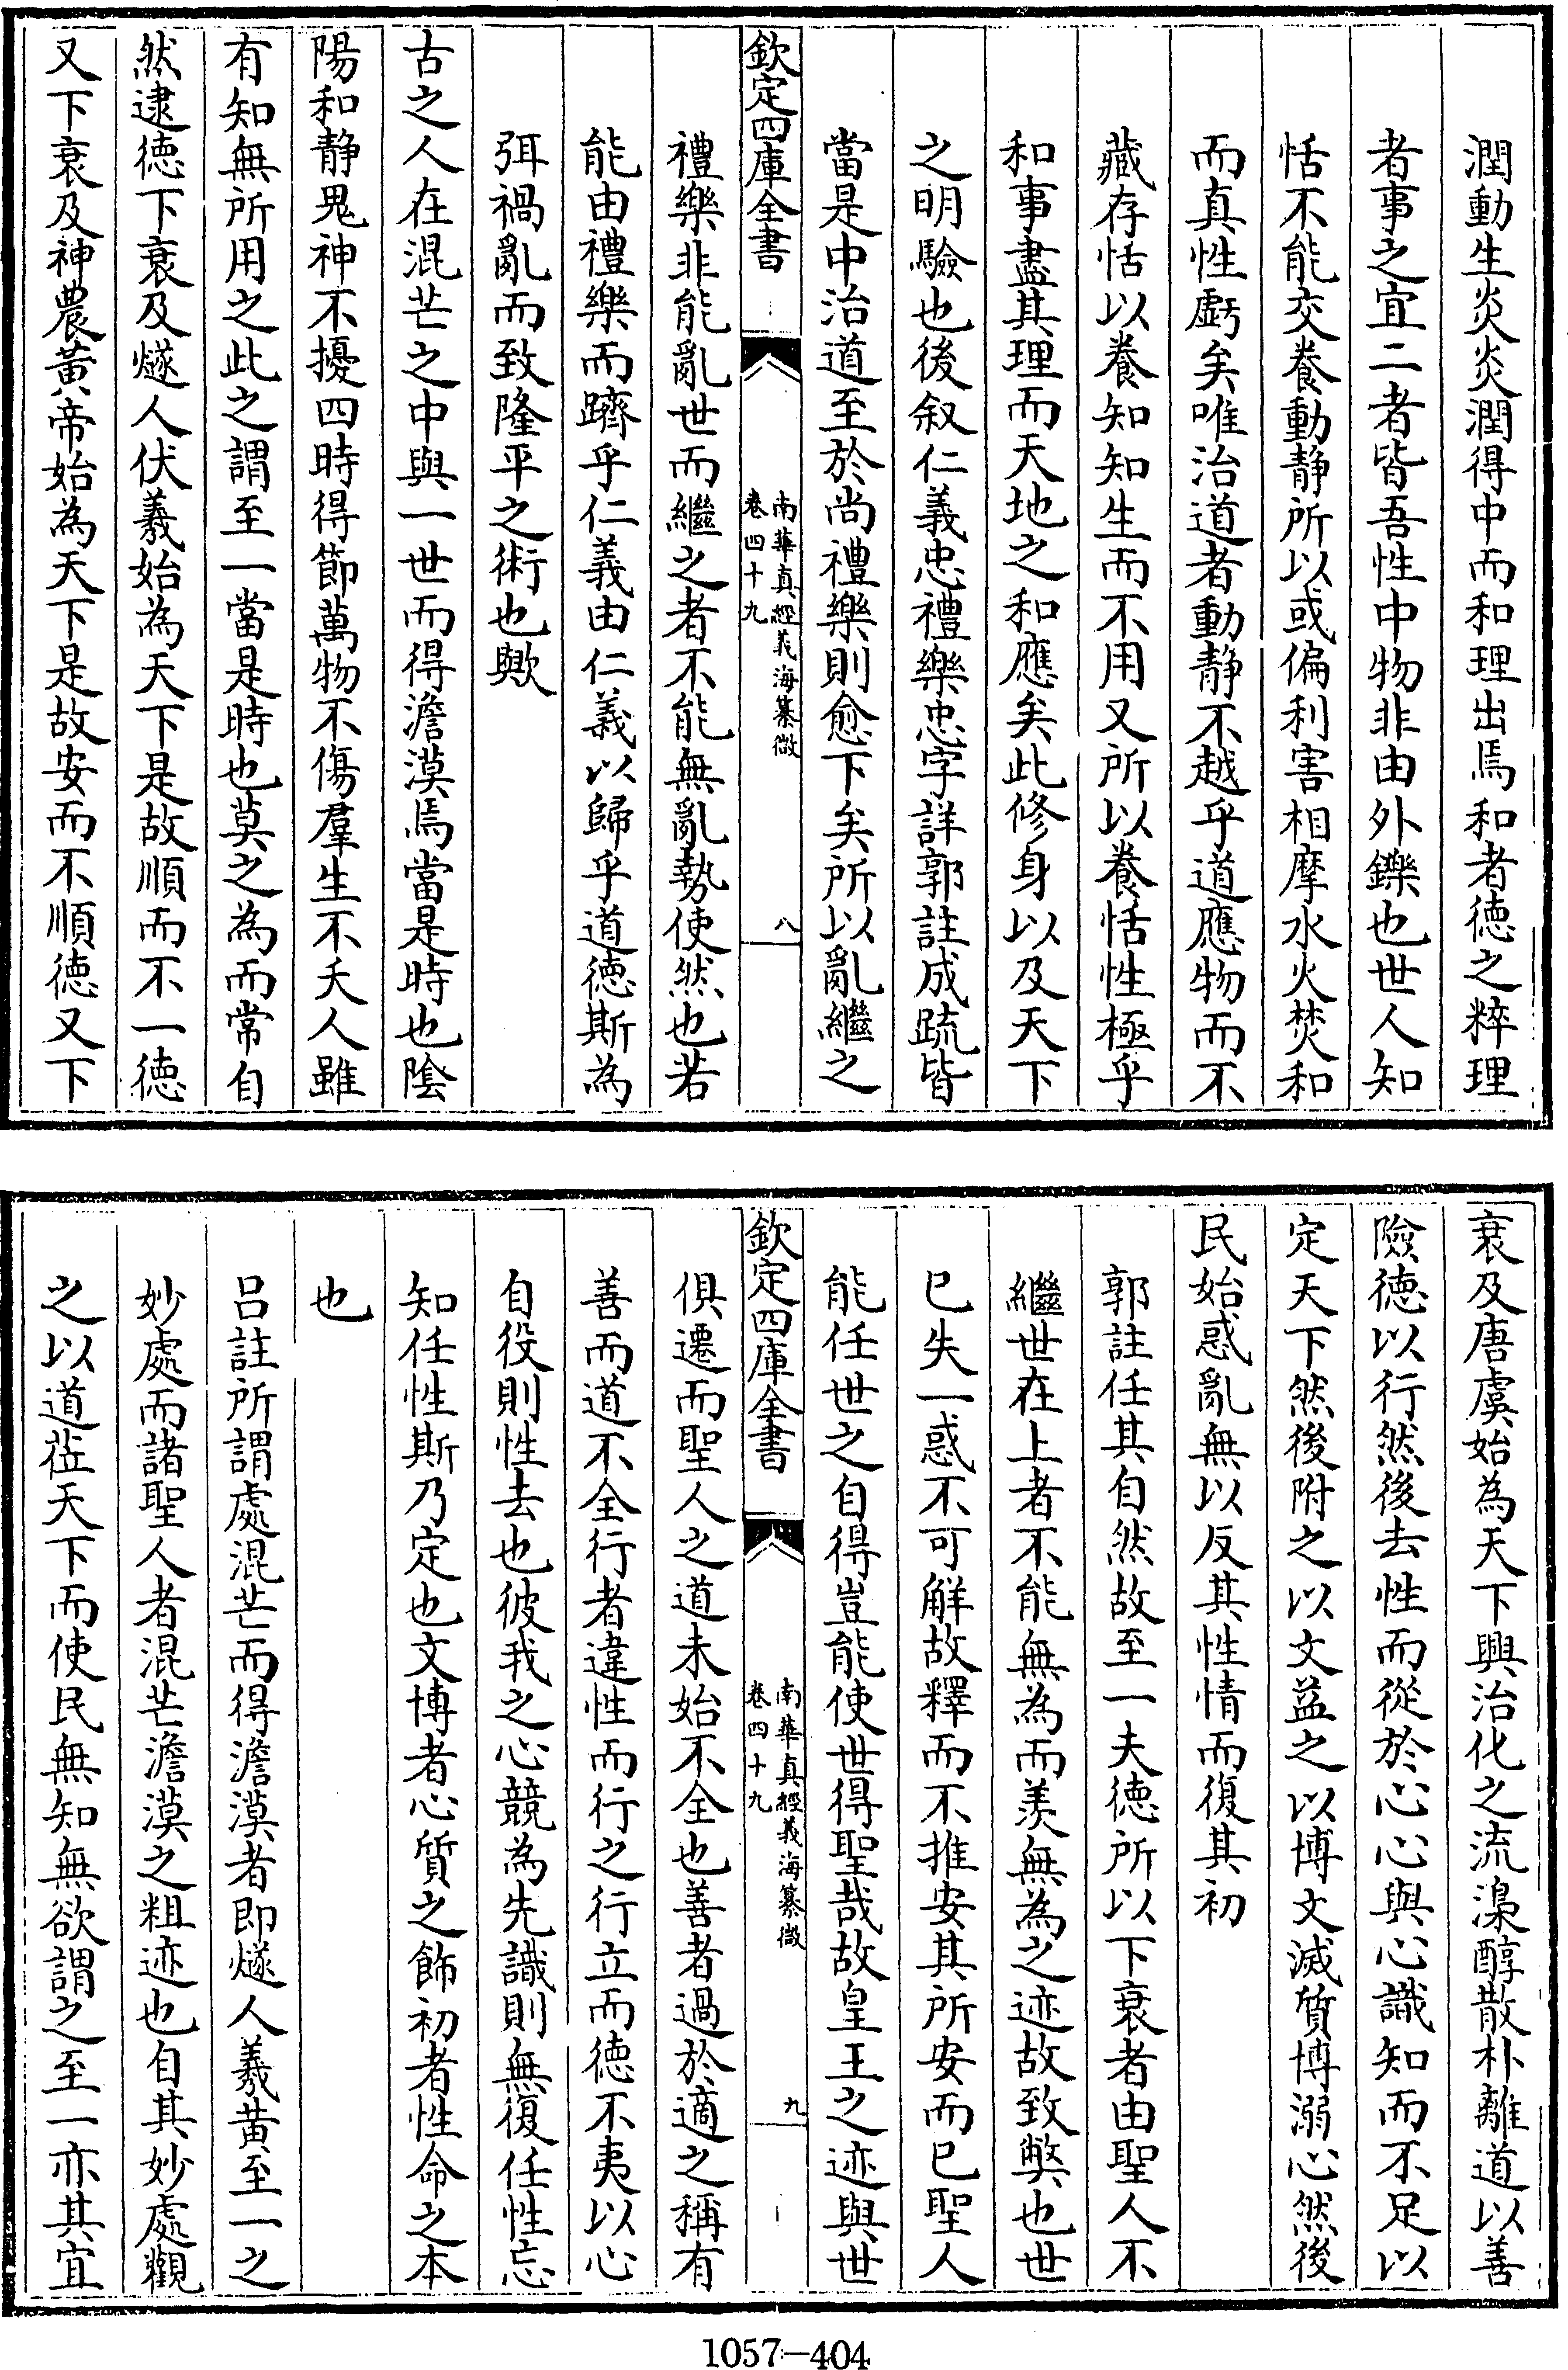 潤動生炎炎潤得中而和理出焉和者徳之粹理
者事之宜二者皆吾性中物非由外鑠也世人知
恬不能交養動静所以或偏利害相摩水火焚和
而真性虧矣唯治道者動静不越乎道應物而不
藏存恬以養知知生而不用又所以養恬性極乎
和事盡其理而天地之和應矣此修身以及天下
之明驗也後叙仁義忠禮樂忠字詳郭註成疏皆
當是中治道至於尚禮樂則愈下矣所以亂繼之
欽定四庫全書
南華真經義海纂微
卷四十九
八
禮樂非能亂世而繼之者不能無亂勢使然也若
能由禮樂而躋乎仁義由仁義以歸乎道徳斯為
弭禍亂而致隆平之術也歟
古之人在混芒之中與一世而得澹漠焉當是時也隂
陽和静鬼神不擾四時得節萬物不傷羣生不夭人雖
有知無所用之此之謂至一當是時也莫之為而常自
然逮徳下衰及燧人伏羲始為天下是故順而不一徳
又下衰及神農黃帝始為天下是故安而不順徳又下
衰及唐虞始為天下興治化之流澆醇散朴離道以善
險徳以行然後去性而從於心心與心識知而不足以
定天下然後附之以文益之以博文滅質博溺心然後
民始惑亂無以反其性情而復其初
郭註任其自然故至一夫徳所以下衰者由聖人不
繼世在上者不能無為而羨無為之迹故致弊也世
已失一惑不可解故釋而不推安其所安而已聖人
能任世之自得豈能使世得聖哉故皇王之迹與世
欽定四庫全書
南華真經義海纂微
卷四十九
九
俱遷而聖人之道未始不全也善者過於適之稱有
善而道不全行者違性而行之行立而徳不夷以心
自役則性去也彼我之心競為先識則無復任性忘
知任性斯乃定也文博者心質之飾初者性命之本
也
吕註所謂處混芒而得澹漠者即燧人羲黄至一之
妙處而諸聖人者混芒澹漠之粗迹也自其妙處觀
之以道莅天下而使民無知無欲謂之至一亦其宜
1057-404